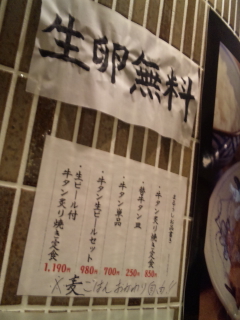 生卵無料
・牛タン炙り焼き定食 850円
・替牛タン皿 250円
・牛タン単品 700円
・牛タン生ビールセット 980円
・生ビール付
牛タン炙り焼き定食 1,190円
麦ごはんおかわり